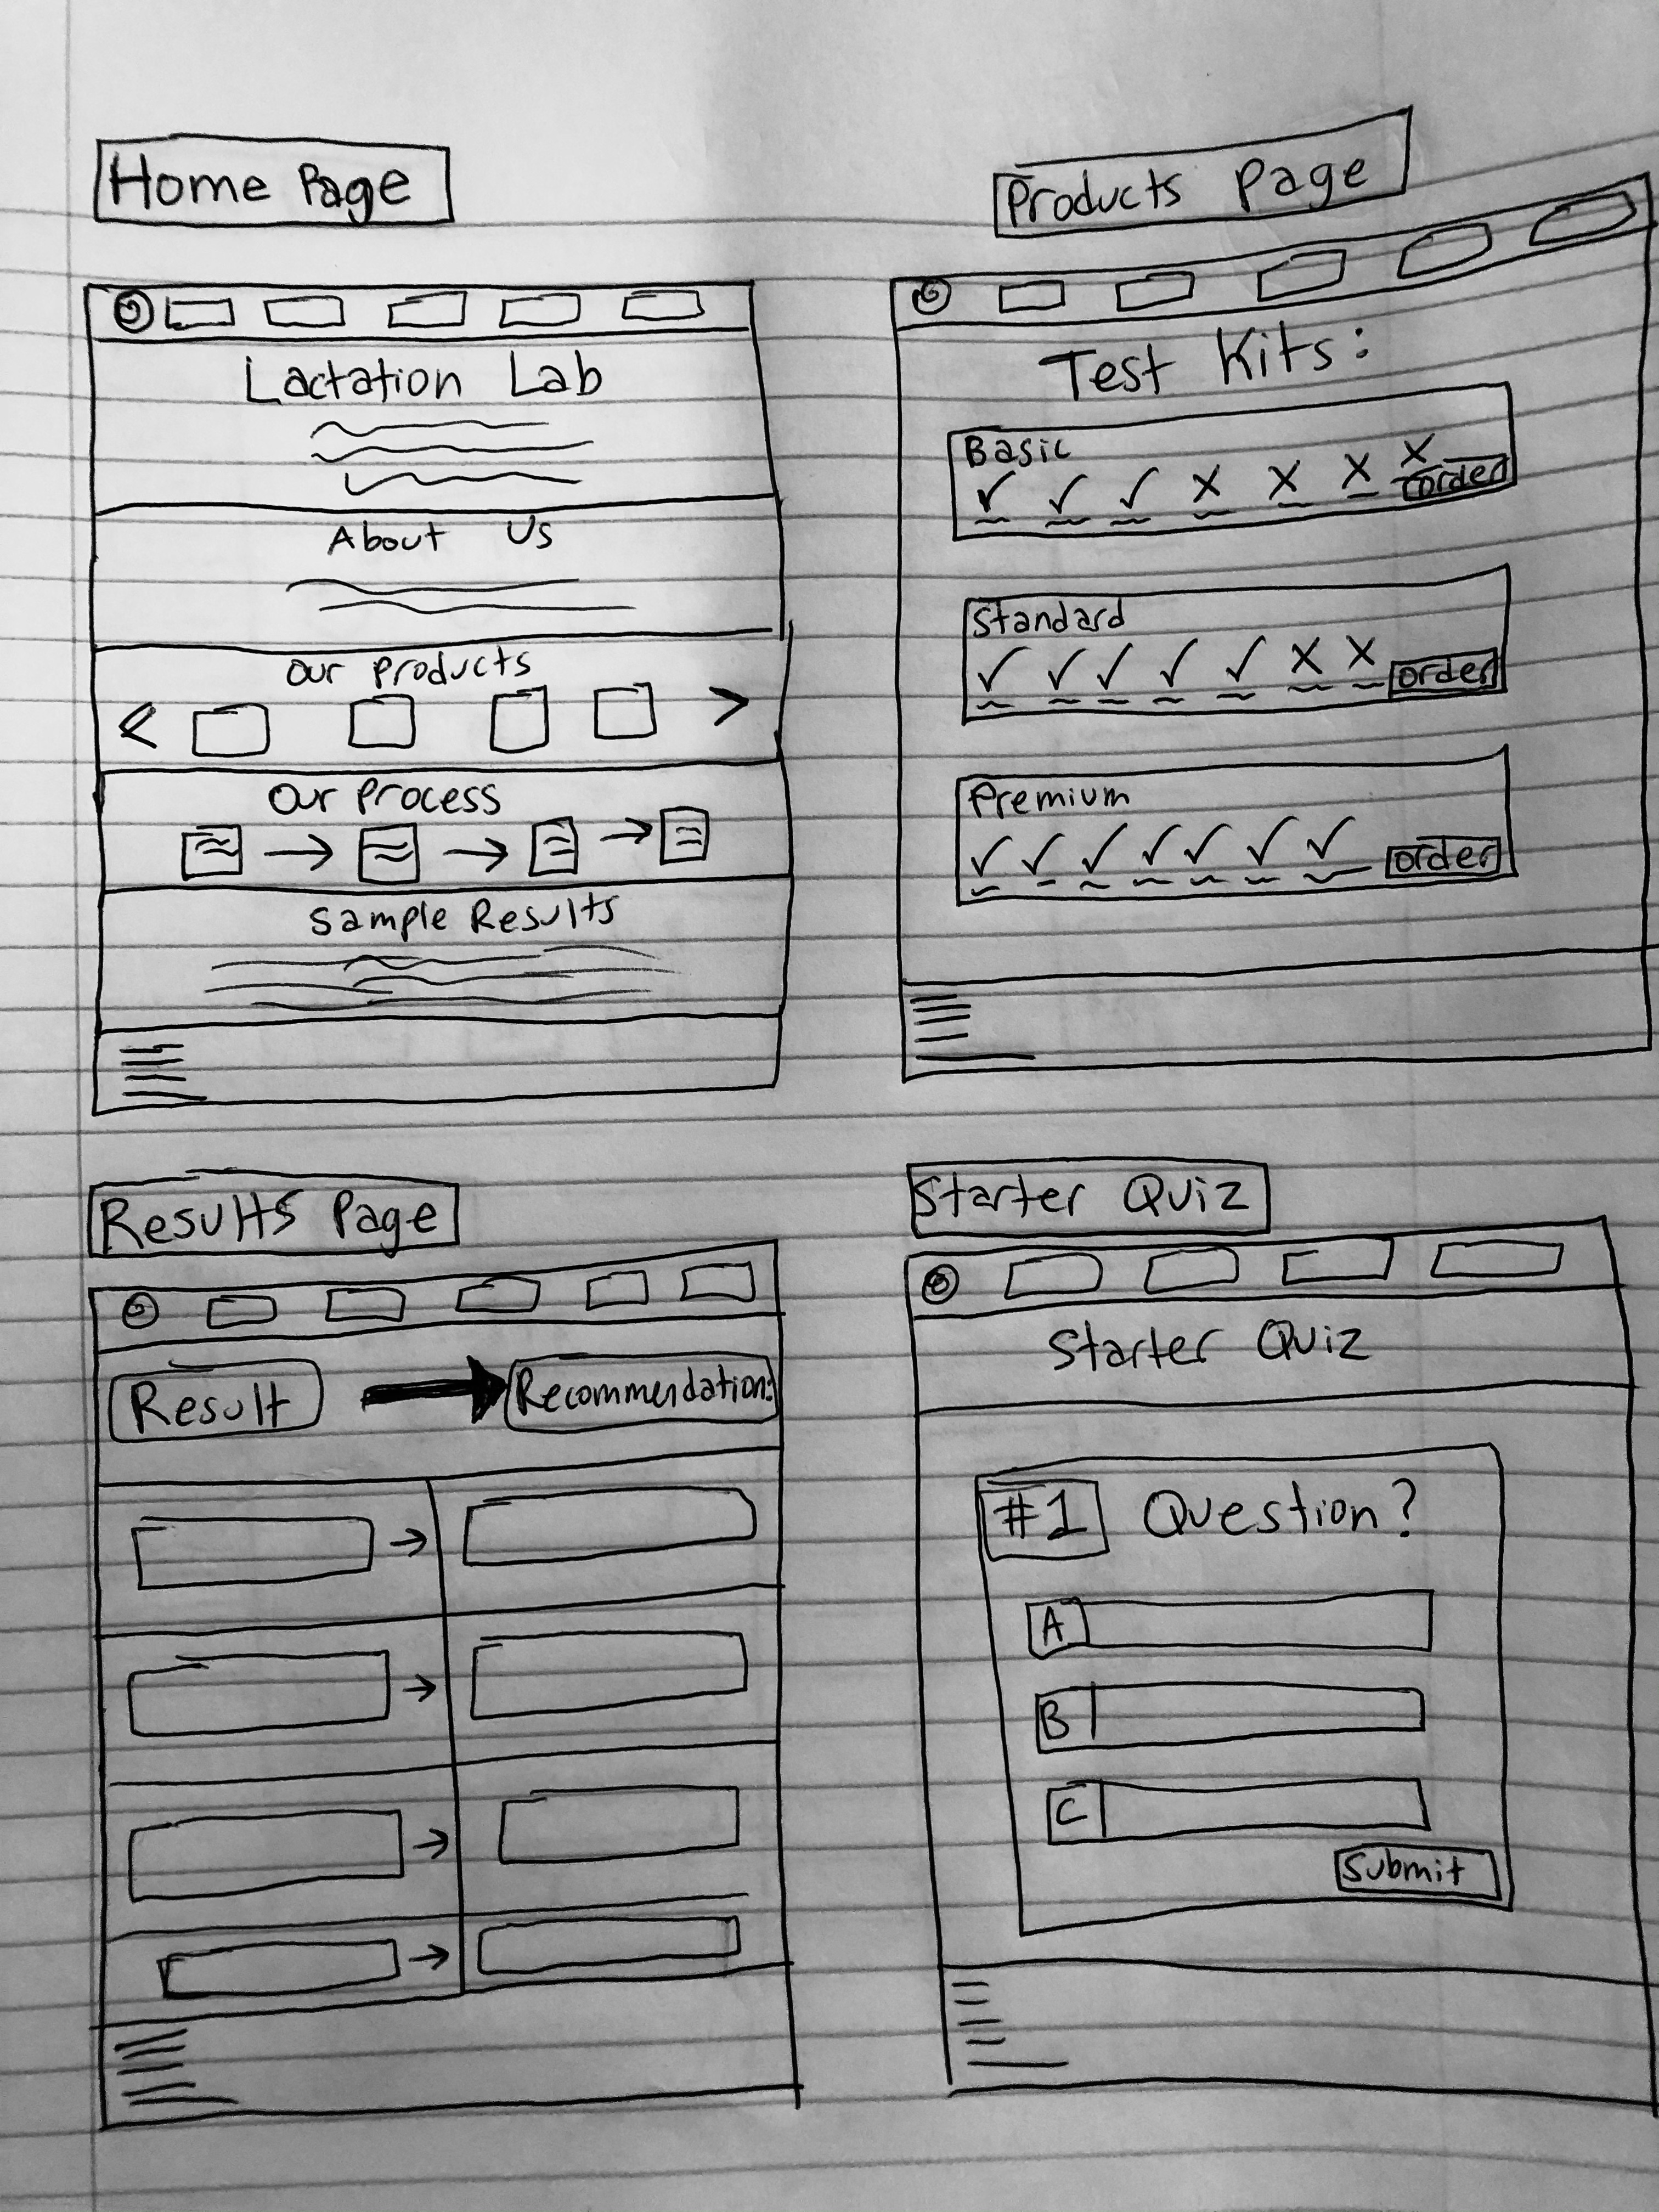 Home Page
Lactation Lab
About Us
Our Products
< >
Our Process
Sample Results
Products Page
Test Kits:
Basic
✓ ✓ ✓ X X X X
order
Standard
✓ ✓ ✓ ✓ ✓ X X
order
Premium
✓ ✓ ✓ ✓ ✓ ✓ ✓
order
Results Page
Result → Recommendation:
Starter Quiz
Starter Quiz
#1 Question?
A
B
C
Submit